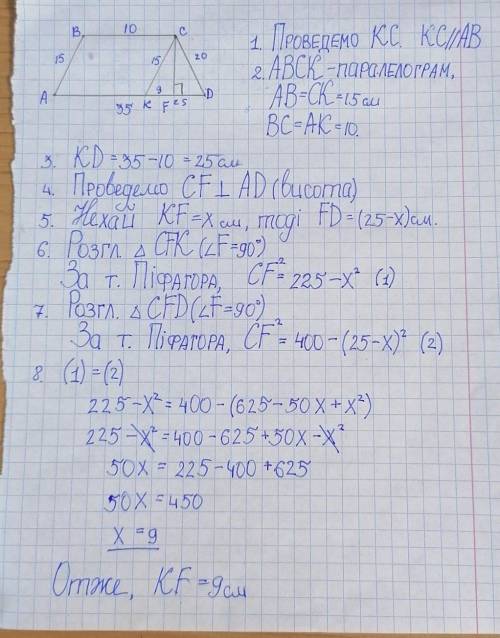 B 10 C
15 15 20
A 35 K 9 F 25 D
1. Проведемо KC. KC//AB
2. ABCK - паралелограм,
AB=CK=15см
BC=AK=10.
3. KD=35-10=25см
4. Проведемо CF⊥AD (висота)
5. Нехай KF=x см, тоді FD=(25-x)см.
6. Розгл. △CFK (∠F=90°)
За т. Піфагора, CF²=225-x² (1)
7. Розгл. △CFD (∠F=90°)
За т. Піфагора, CF²=400-(25-x)² (2)
8. (1)=(2)
225-x²=400-(625-50x+x²)
225-x²=400-625+50x-x²
50x=225-400+625
50x=450
x=9
Отже, KF=9см